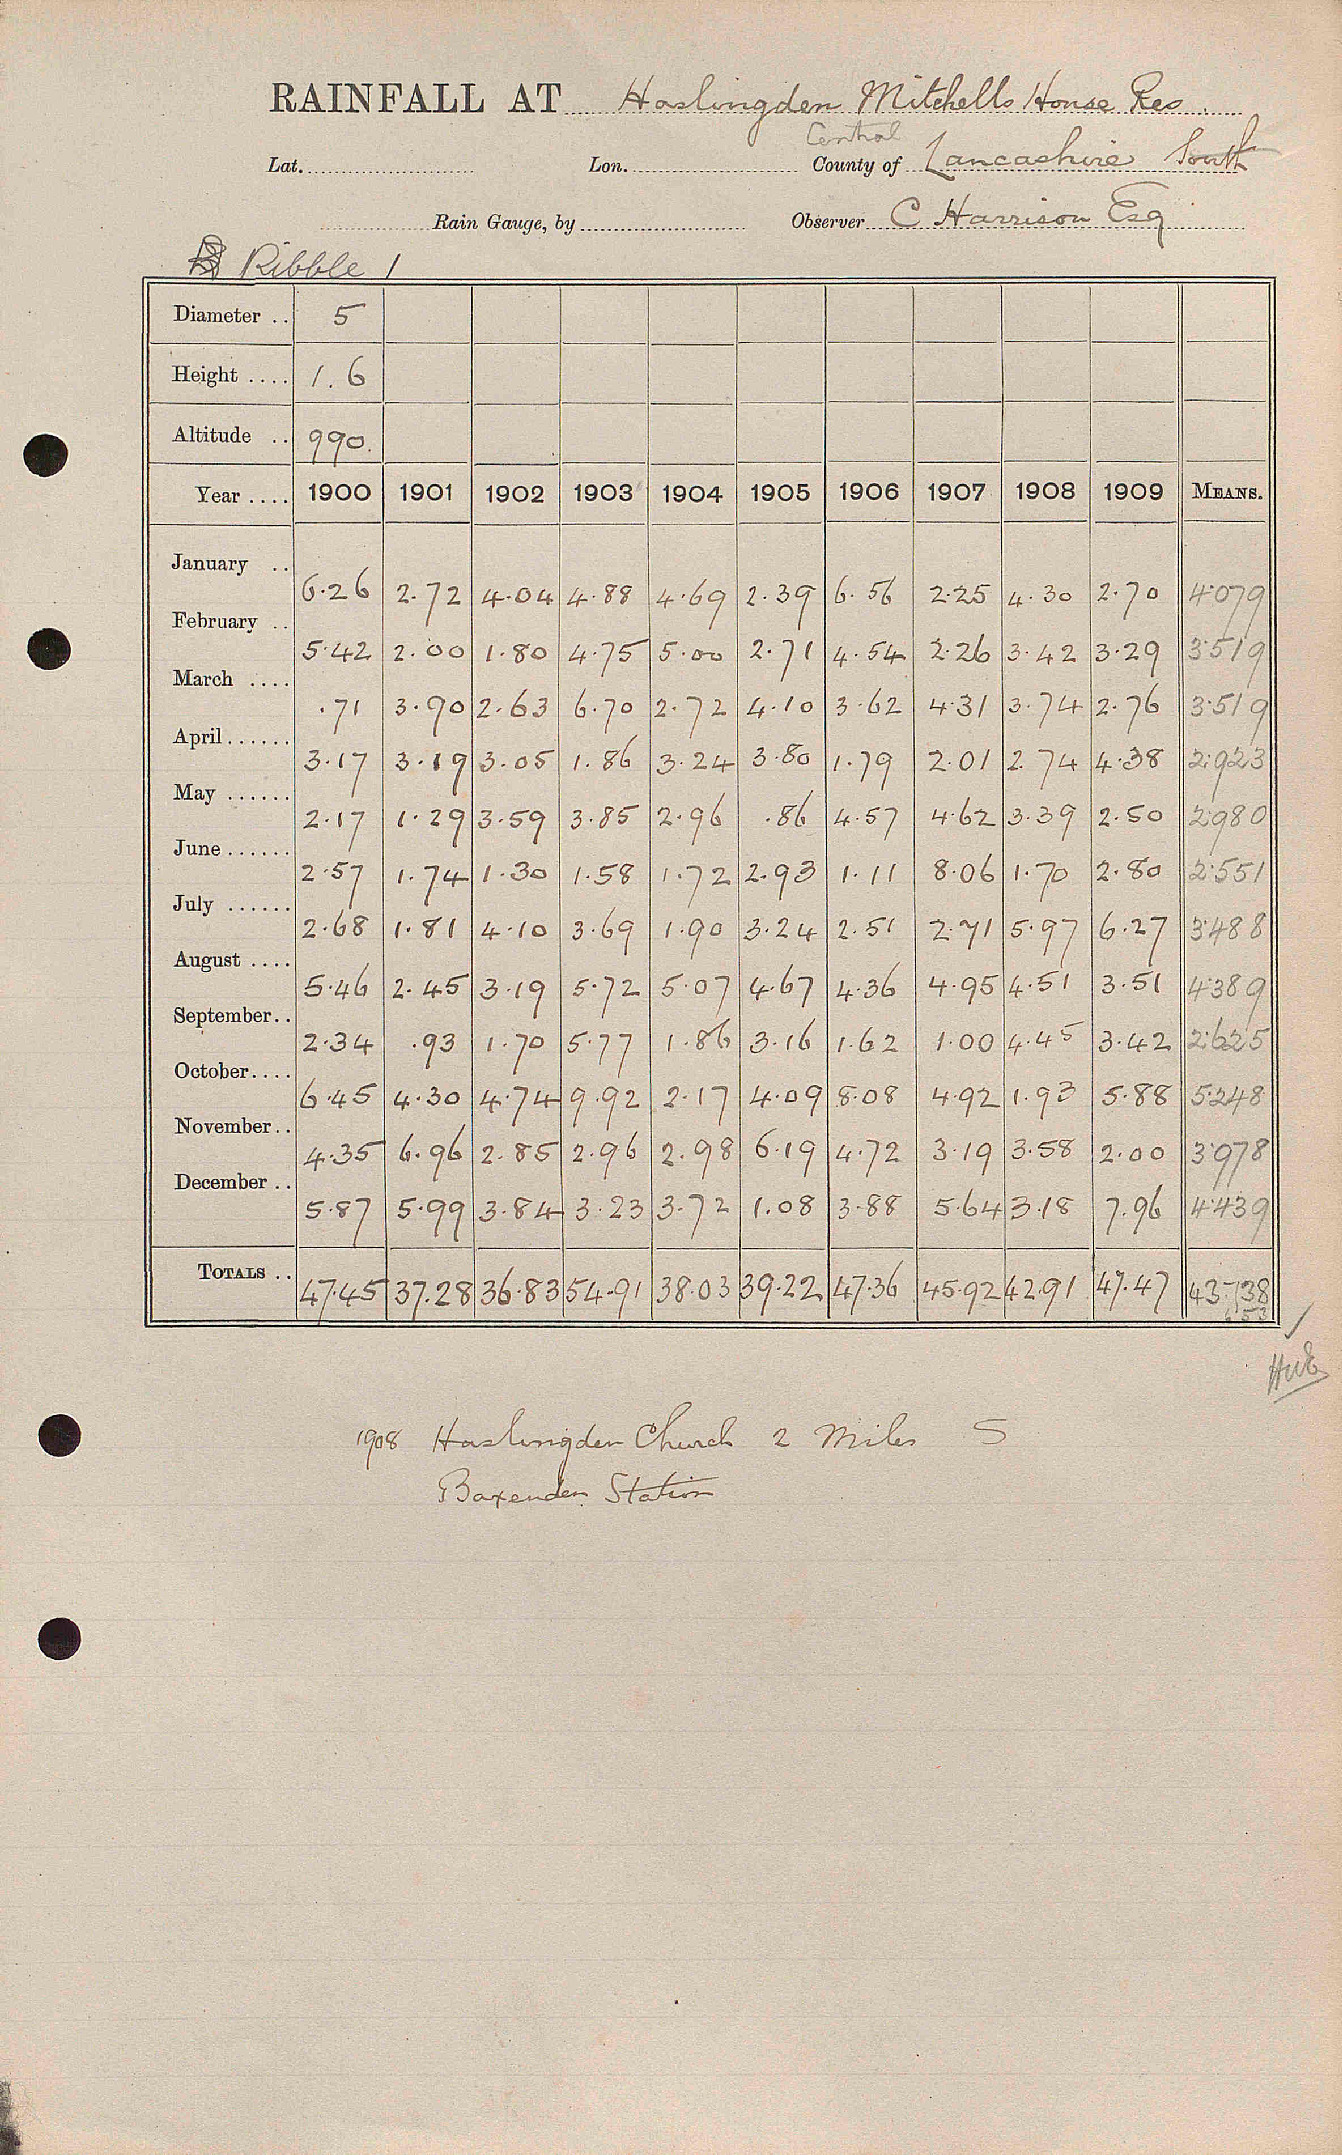 RAINFALL AT Haslingden Mitchells House Res.
Central
Lat. Lon. County of Lancashire South
Rain Gauge, by Observer C Harrison Esq
Ribble 1
Diameter .. 5
Height .... 1.6
Altitude .. 990.
Year .... 1900 1901 1902 1903 1904 1905 1906 1907 1908 1909 MEANS.
January .. 6.26 2.72 4.04 4.88 4.69 2.39 6.56 2.25 4.30 2.70 4.079
February .. 5.42 2.00 1.80 4.75 5.00 2.71 4.54 2.26 3.42 3.29 3.519
March .... .71 3.90 2.63 6.70 2.72 4.10 3.62 4.31 3.74 2.76 3.519
April...... 3.17 3.19 3.05 1.86 3.24 3.80 1.79 2.01 2.74 4.38 2.923
May ...... 2.17 1.29 3.59 3.85 2.96 .86 4.57 4.62 3.39 2.50 2.980
June...... 2.57 1.74 1.30 1.58 1.72 2.93 1.11 8.06 1.70 2.80 2.551
July ...... 2.68 1.81 4.10 3.69 1.90 3.24 2.51 2.71 5.97 6.27 3.488
August .... 5.46 2.45 3.19 5.72 5.07 4.67 4.36 4.95 4.51 3.51 4.389
September.. 2.34 .93 1.70 5.77 1.86 3.16 1.62 1.00 4.45 3.42 2.625
October.... 6.45 4.30 4.74 9.92 2.17 4.09 8.08 4.92 1.93 5.88 5.248
November.. 4.35 6.96 2.85 2.96 2.98 6.19 4.72 3.19 3.58 2.00 3.978
December .. 5.87 5.99 3.84 3.23 3.72 1.08 3.88 5.64 3.18 7.96 4.439
TOTALS .. 47.45 37.28 36.83 54.91 38.03 39.22 47.36 45.92 42.91 47.47 43.738
1908 Haslingden Church 2 Miles S
Baxenden Station